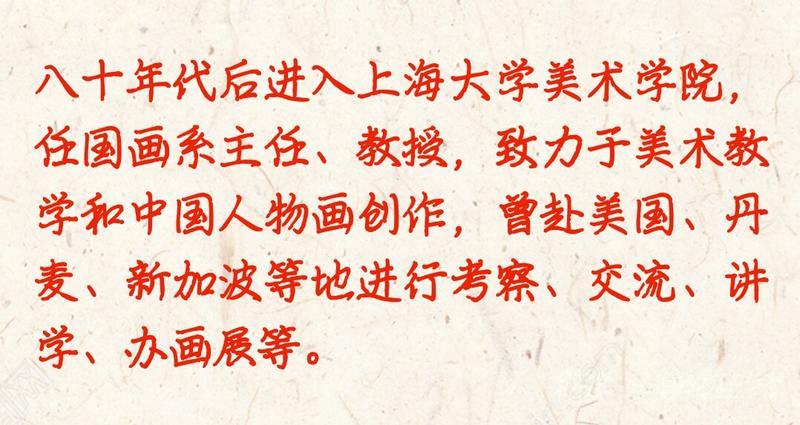 八十年代后进入上海大学美术学院，
任国画系主任、教授，致力于美术教
学和中国人物画创作，曾赴美国、丹
麦、新加波等地进行考察、交流、讲
学、办画展等。